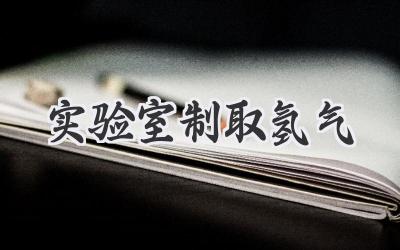 实验室制取氢气